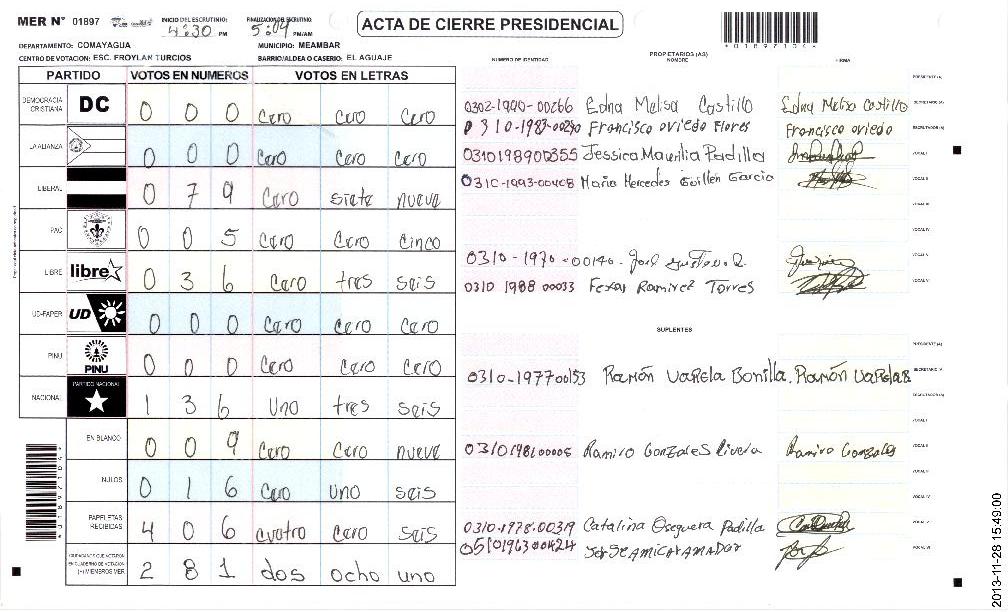 MER N° 01897
INICIO DEL ESCRUTINIO:
4:30 PM
FINALIZACION DEL ESCRUTINIO:
5:04 PM/AM
ACTA DE CIERRE PRESIDENCIAL
DEPARTAMENTO: COMAYAGUA
MUNICIPIO: MEAMBAR
CENTRO DE VOTACION: ESC. FROYLAN TURCIOS
BARRIO/ALDEA O CASERIO: EL AGUAJE
PARTIDO VOTOS EN NUMEROS VOTOS EN LETRAS
DEMOCRACIA CRISTIANA DC 0 0 0 Cero Cero Cero
LA ALIANZA 0 0 0 Cero Cero Cero
LIBERAL 0 7 9 Cero siete nueve
PAC 0 0 5 Cero Cero Cinco
LIBRE libre 0 3 6 Cero tres seis
UD-FAPER UD 0 0 0 Cero Cero Cero
PINU PINU 0 0 0 Cero Cero Cero
NACIONAL PARTIDO NACIONAL 1 3 6 Uno tres seis
EN BLANCO 0 0 9 Cero Cero nueve
NULOS 0 1 6 Cero uno seis
PAPELETAS RECIBIDAS 4 0 6 cuatro Cero seis
CIUDADANOS QUE VOTARON EN CUADERNO DE VOTACION (+) MIEMBROS MER 2 8 1 dos ocho uno
NUMERO DE IDENTIDAD
PROPIETARIOS (AS)
NOMBRE
FIRMA
PRESIDENTE (A)
0302-1990-00266 Edna Melisa Castillo Edna Melisa Castillo SECRETARIO (A)
0310-1983-00290 Francisco oviedo Flores Francisco oviedo ESCRUTADOR (A)
0310198900355 Jessica Maurilia Padilla VOCAL I
0310-1993-00408 Maria Hercedes Guillén Garcia VOCAL II
VOCAL III
VOCAL IV
0310-1970-00140 VOCAL V
0310 1988 00033 Ramirez Torres VOCAL VI
SUPLENTES
PRESIDENTE (A)
0310-197700153 Ramón Varela Bonilla. Ramón Varela B SECRETARIO (A)
ESCRUTADOR (A)
VOCAL I
0310198100005 Ramiro Gonzales Rivera Ramiro Gonzales VOCAL II
VOCAL III
VOCAL IV
0310-1978-00319 Catalina Oseguera Padilla VOCAL V
0501963 00424 VOCAL VI
01897104
2013-11-28 15:49:00